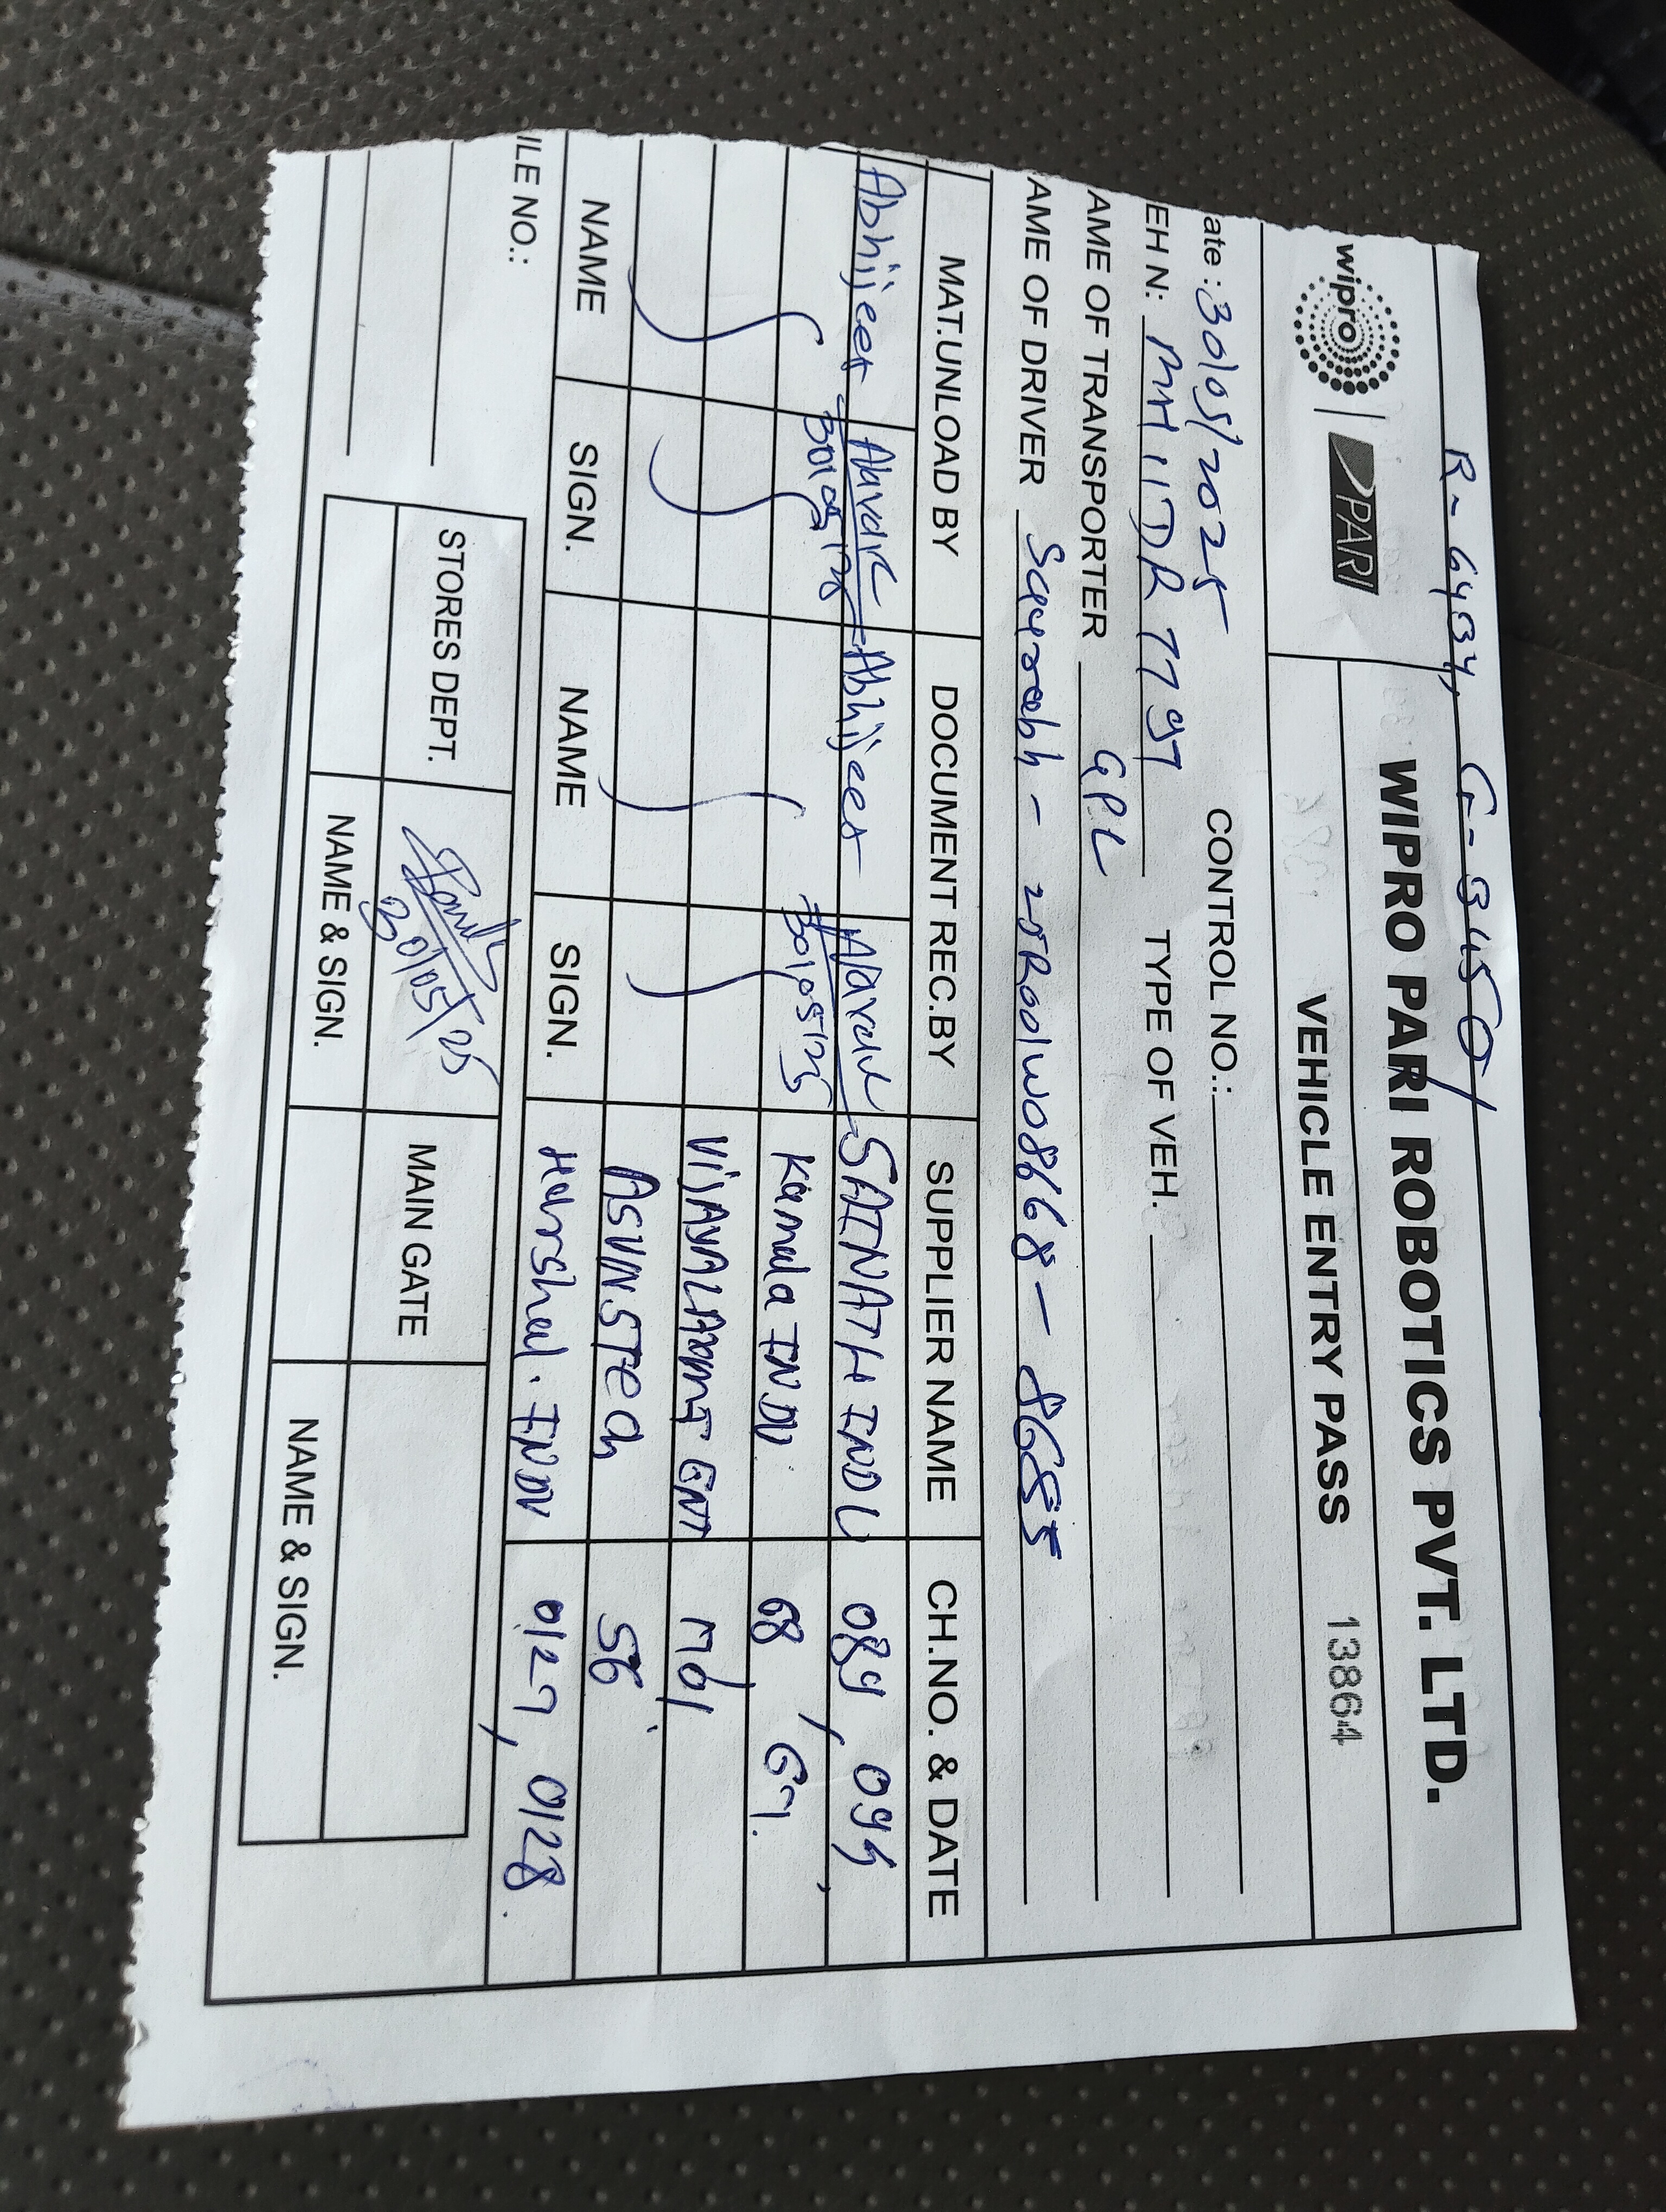 R- 6434, G- 3450/
wipro | PARI
WIPRO PARI ROBOTICS PVT. LTD.
VEHICLE ENTRY PASS 13864
ate : 30/05/2025 CONTROL NO.:
EH N: MH11DR 7797 TYPE OF VEH.
AME OF TRANSPORTER GPL
AME OF DRIVER - 25R001W0868 - 8685
MAT.UNLOAD BY DOCUMENT REC.BY SUPPLIER NAME CH.NO. & DATE
Abhijeet Abhijeet SAINATH INDU 089, 094,
30/05/25 30/05/25 Kamala INDU. 68, 67.
VIJAYALAXMI ENT 1701
ASUNSTECH 56
NAME SIGN. NAME SIGN. Harshal. INDU 0127, 0128.
ILE NO.:
STORES DEPT. 30/05/25 MAIN GATE
NAME & SIGN. NAME & SIGN.